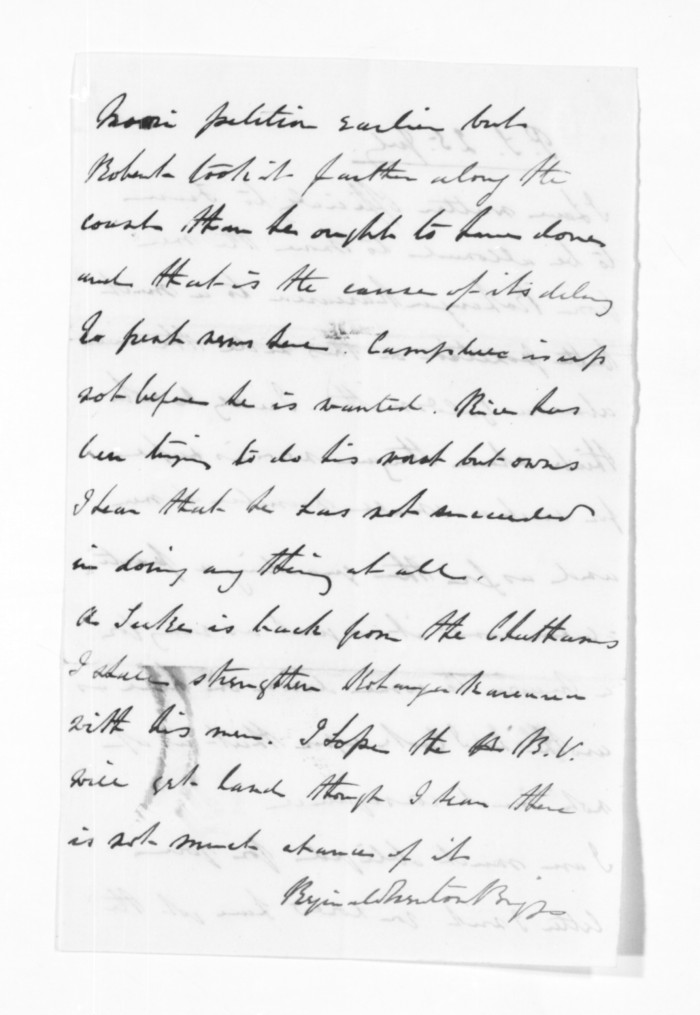 Maori petition earlier but
Robert took it further along the
coast than he ought to have done
and that is the cause of its delay
No fresh news here. Campbell is up
not before he is wanted. Rice has
been trying to do his worst but
I hear that he has not succeeded
in doing any thing at all.
is back from the Chathams
I shall strengthen
with his men. I hope the B.V.
will get land though I hear there
is not much chance of it
Reginald Newton Biggs